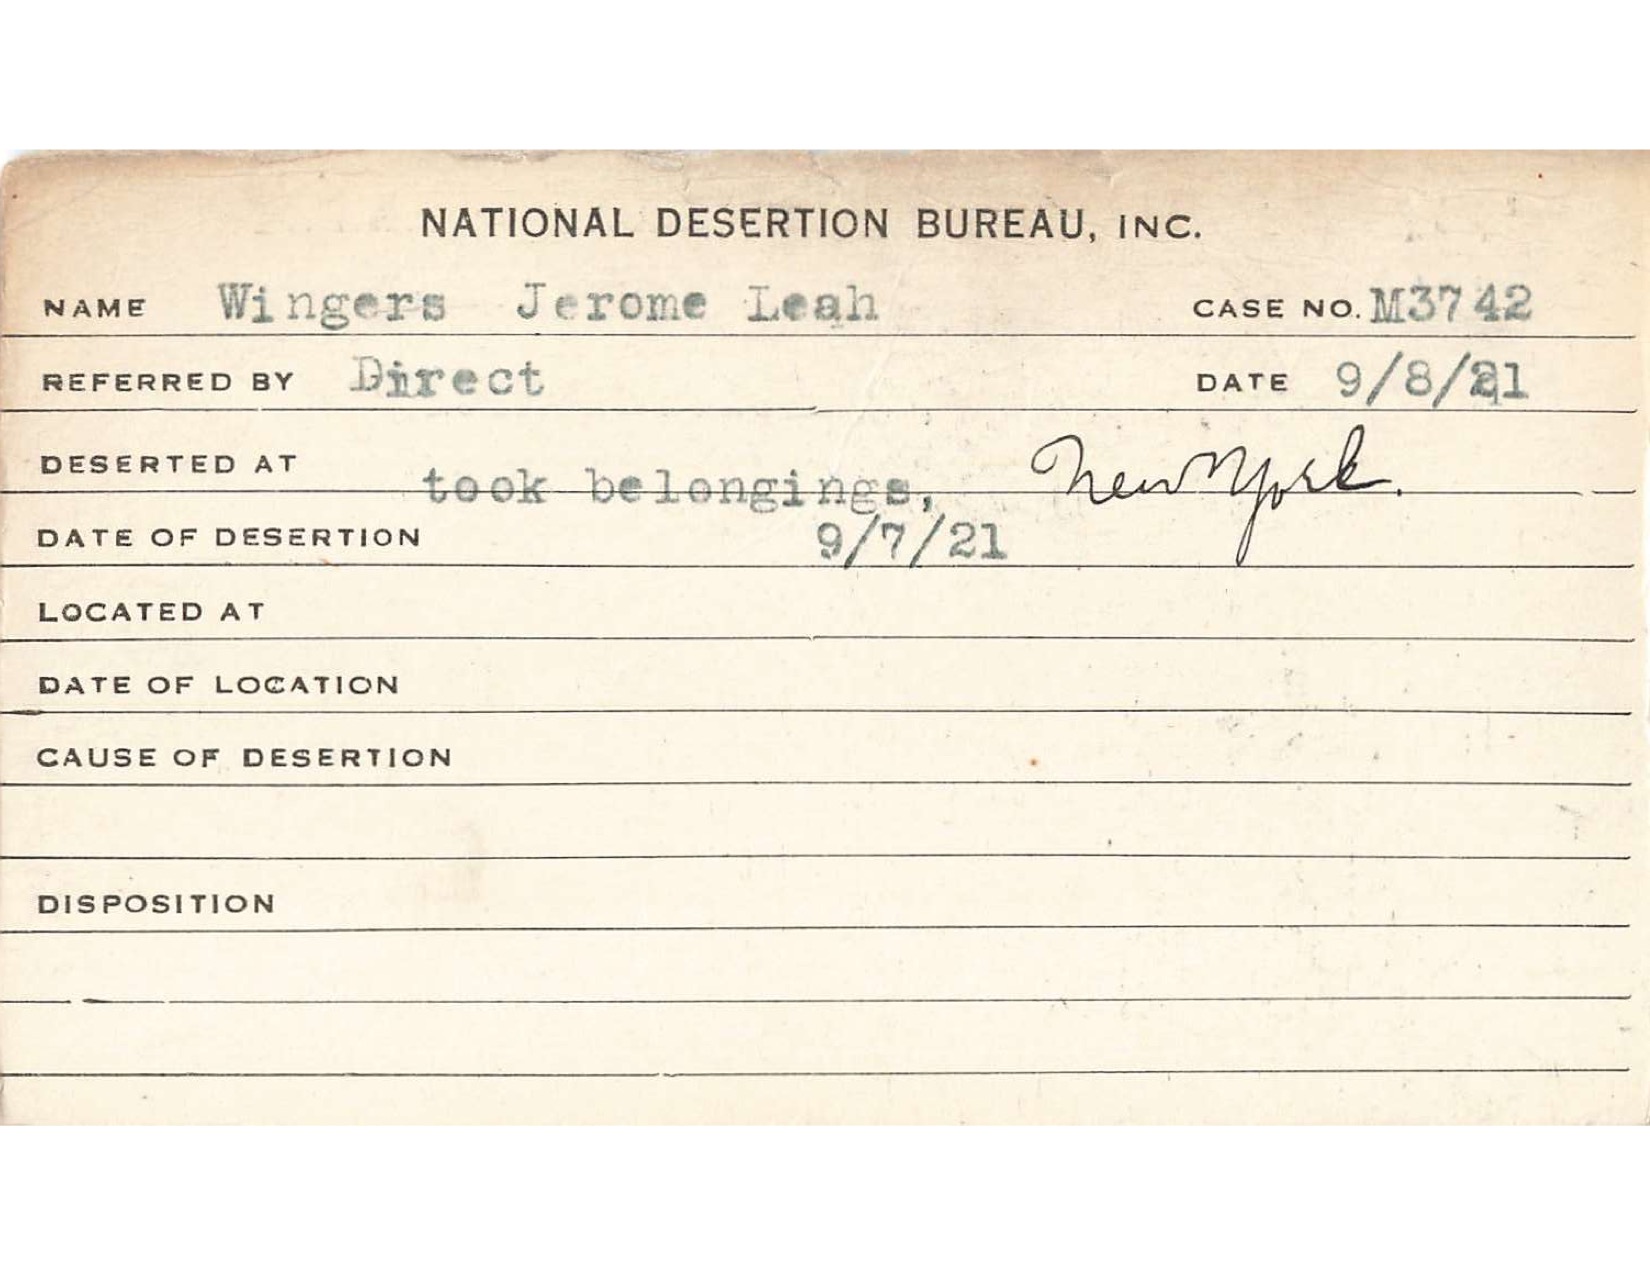 NATIONAL DESERTION BUREAU, INC.
NAME Wingers Jerome Leah CASE NO. M3742
REFERRED BY Direct DATE 9/8/21
DESERTED AT took belongings, New York.
DATE OF DESERTION 9/7/21
LOCATED AT
DATE OF LOCATION
CAUSE OF DESERTION
DISPOSITION